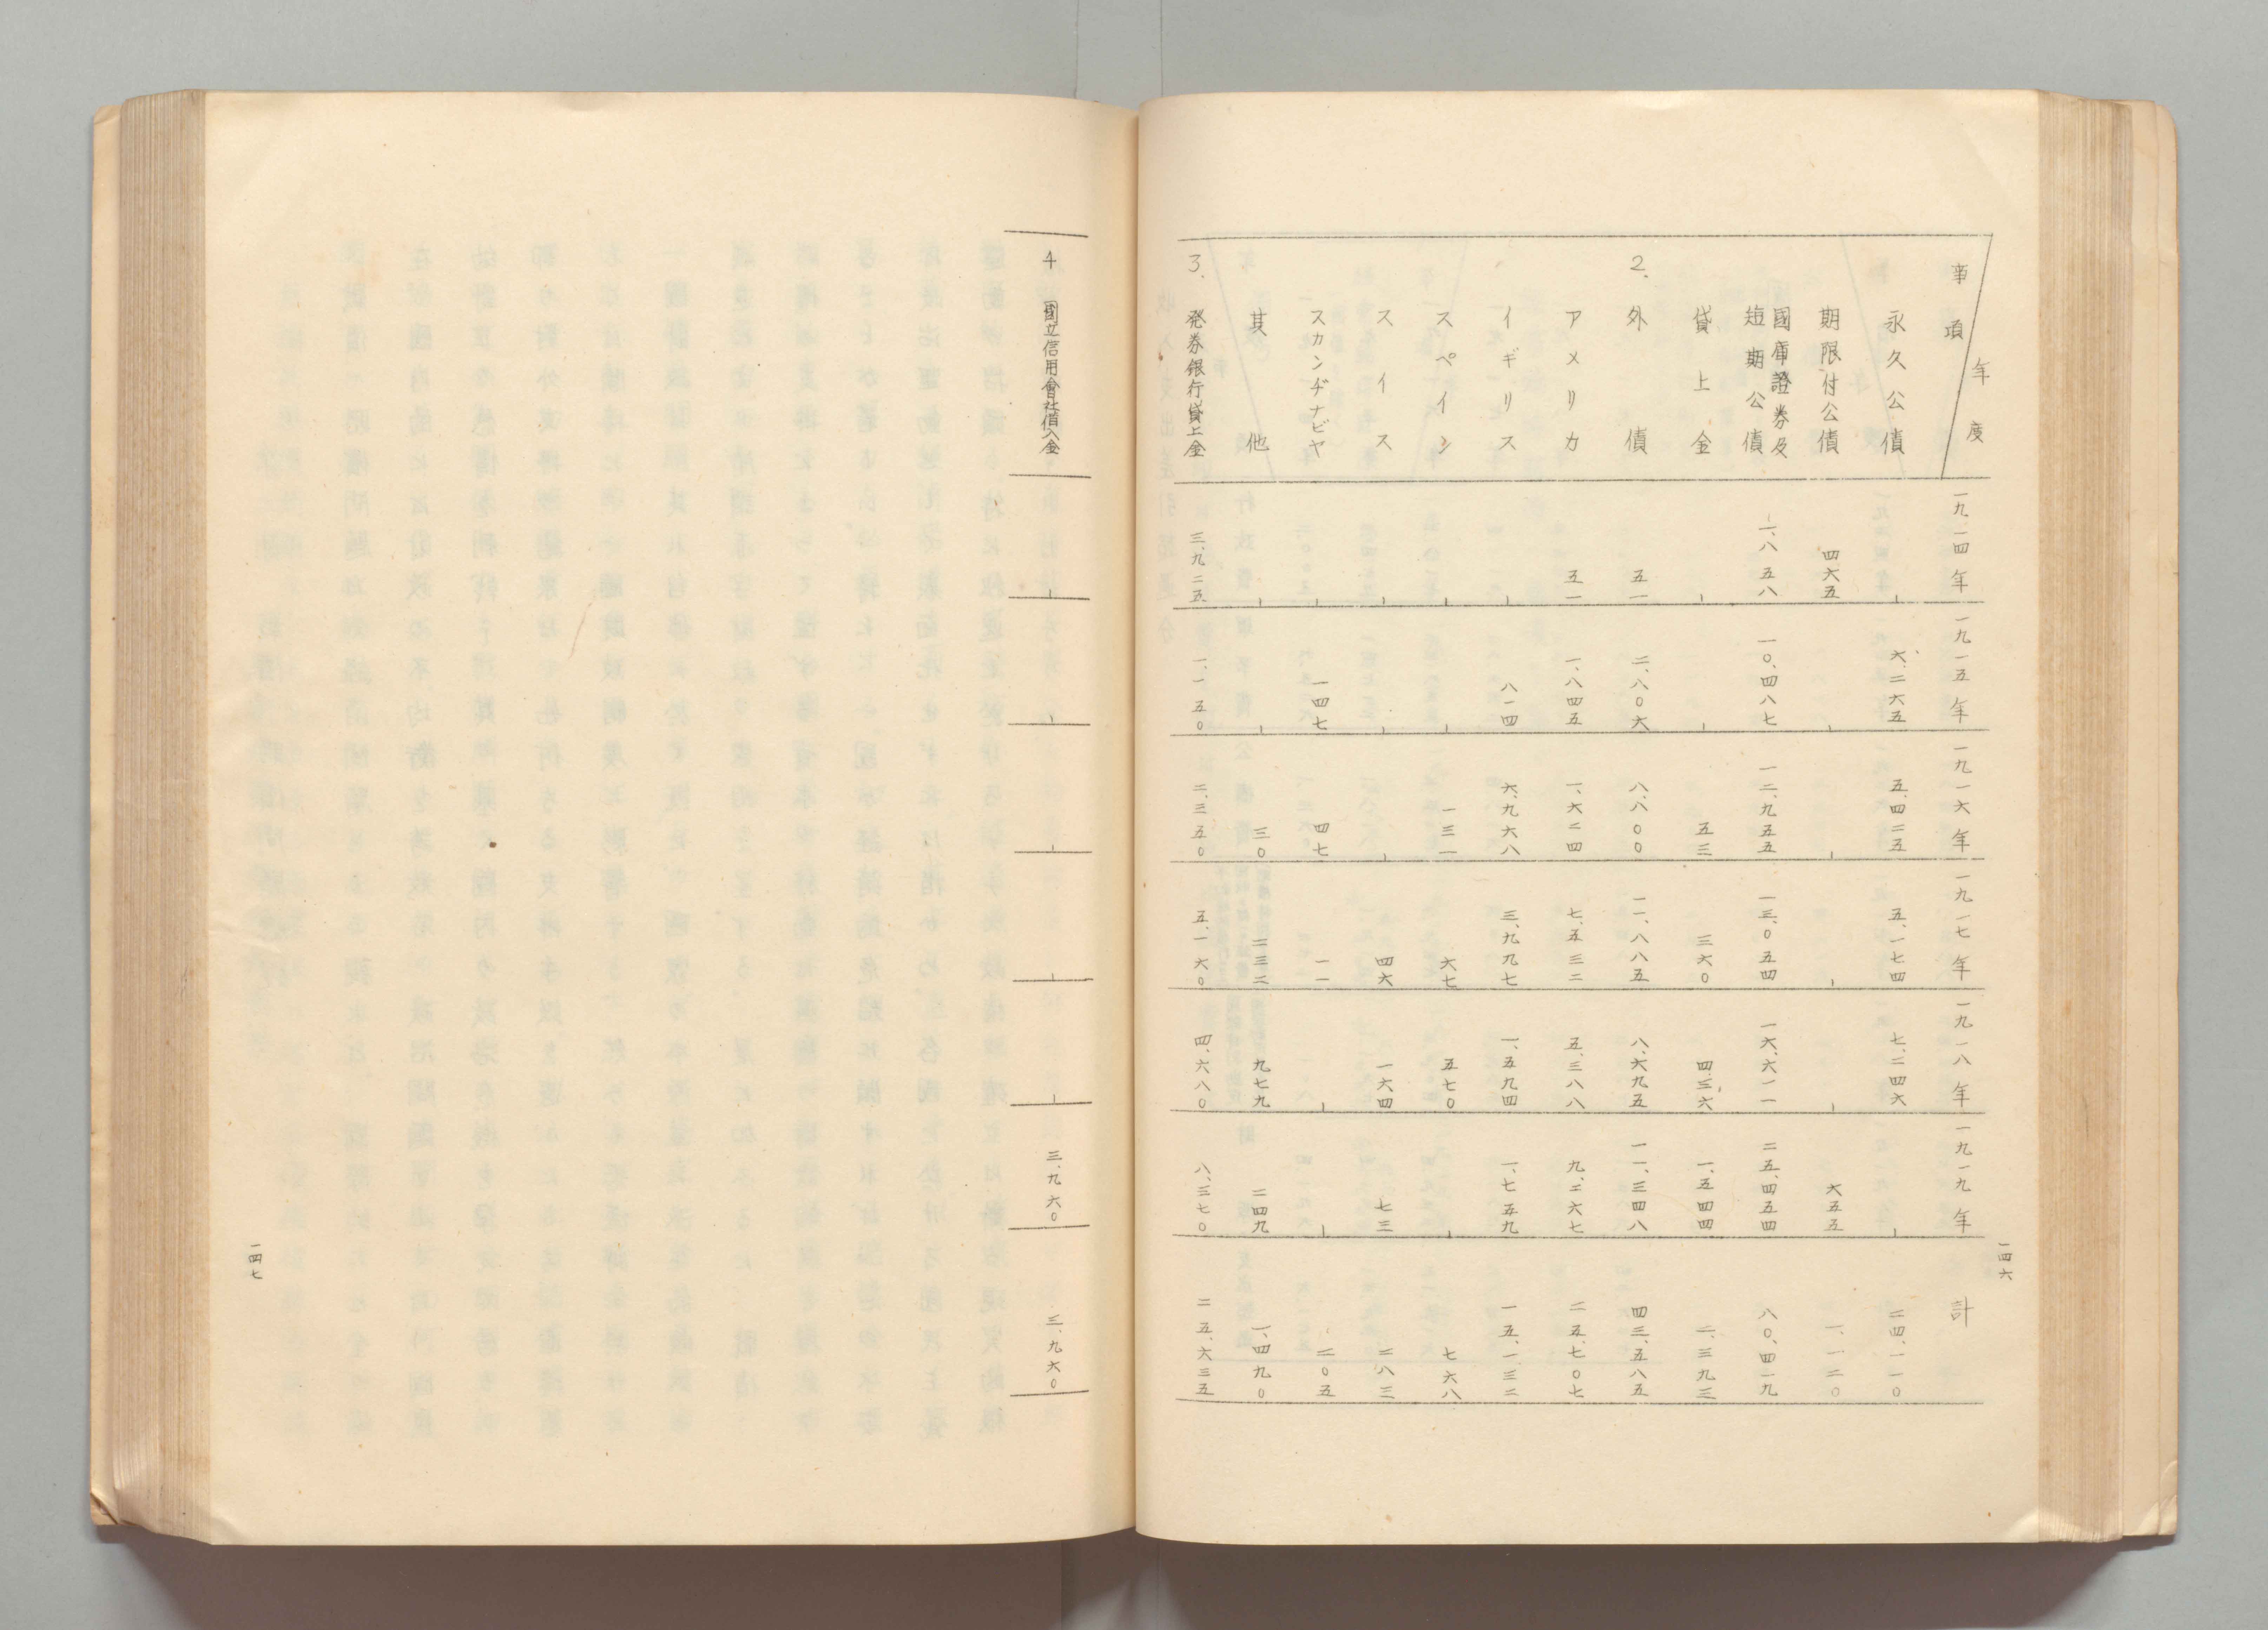 一四六
事項 年度 一九一四年 一九一五年 一九一六年 一九一七年 一九一八年 一九一九年 計
永久公債 - 六、二六五 五、四二五 五、一七四 七、二四六 - 二四、一一〇
期限付公債 四六五 - - - - 六五五 一、一二〇
國庫證券及
短期公債 一、八五八 一〇、四八七 一二、九五五 一三、〇五四 一六、六一一 二五、四五四 八〇、四一九
貸上金 - - 五三 三六〇 四三六 一、五四四 二、三九三
2. 外債 五一 二、八〇六 八、八〇〇 一一、八八五 八、六九五 一一、三四八 四三、五八五
アメリカ 五一 一、八四五 一、六二四 七、五三二 五、三八八 九、二六七 二五、七〇七
イギリス - 八一四 六、九六八 三、九九七 一、五九四 一、七五九 一五、一三二
スペイン - - 一三一 六七 五七〇 - 七六八
スイス - - - 四六 一六四 七三 二八三
スカンヂナビヤ - 一四七 四七 一一 - - 二〇五
其他 - - 三〇 二三二 九七九 二四九 一、四九〇
3. 発券銀行貸上金 三、九二五 一、一五〇 二、三五〇 五、一六〇 四、六八〇 八、三七〇 二五、六三五
4 國立信用會社借入金 - - - - - 三、九六〇 三、九六〇
一四七